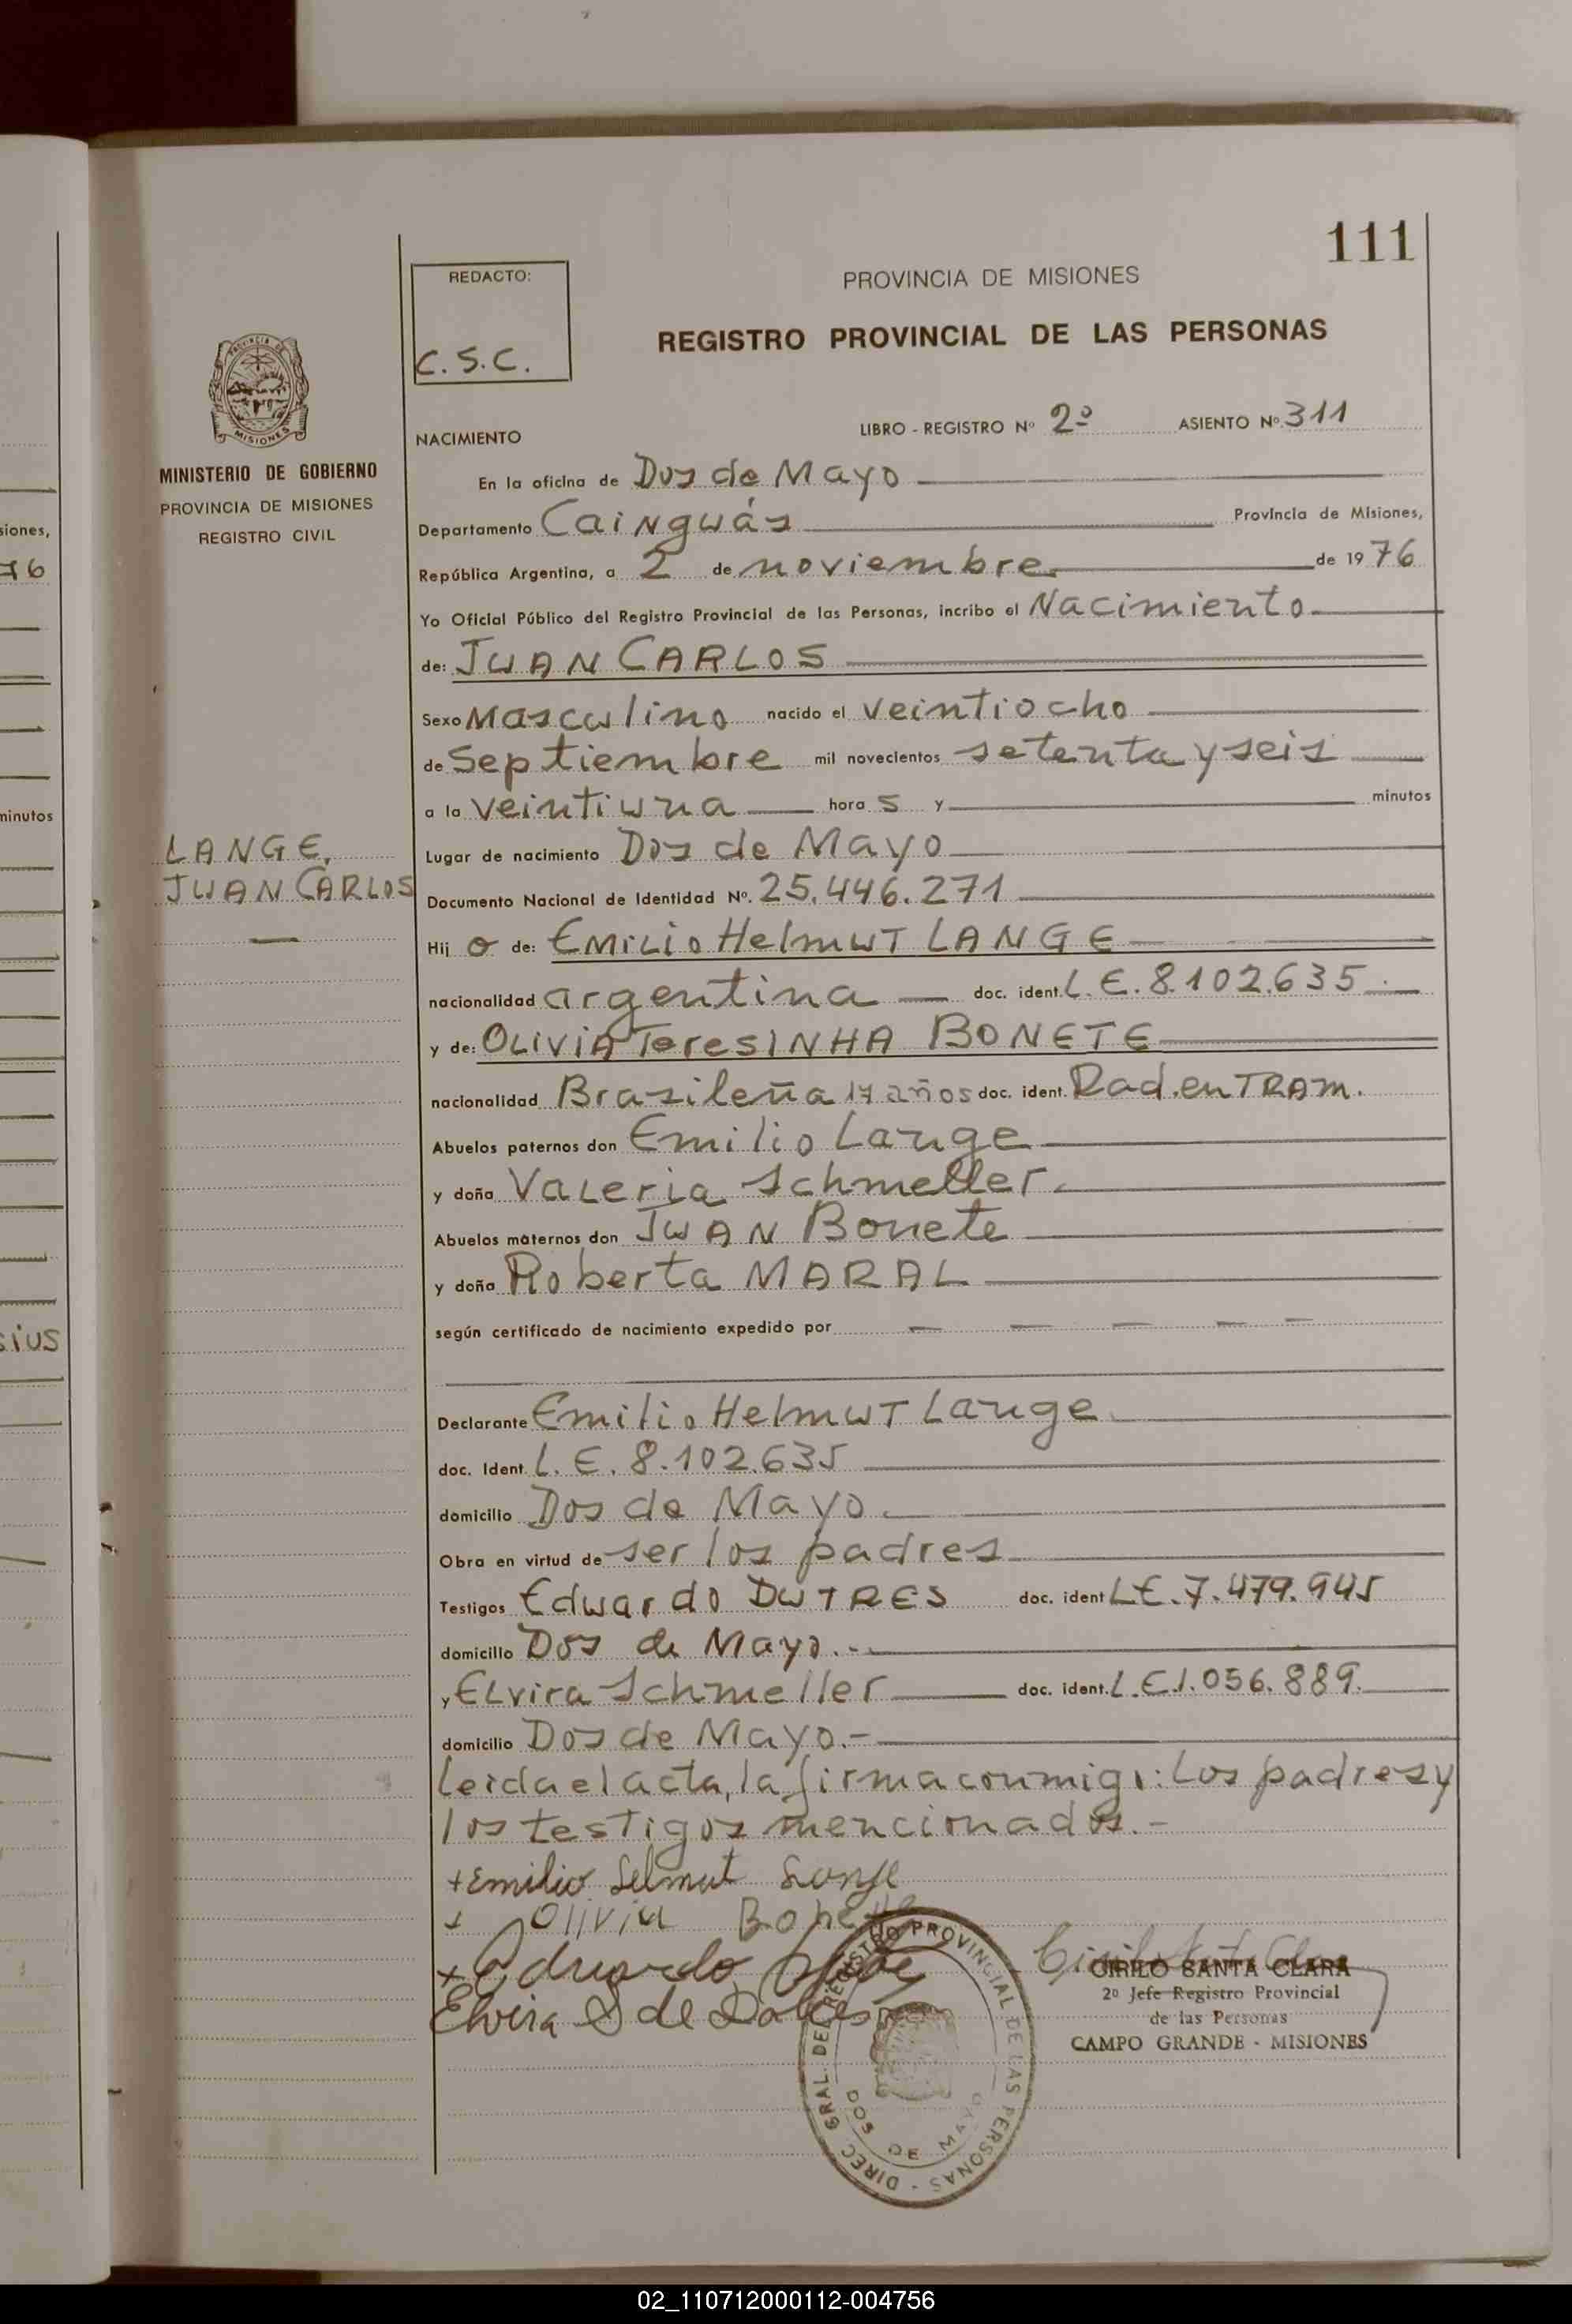 111
REDACTO:
C.S.C.
PROVINCIA DE MISIONES
REGISTRO PROVINCIAL DE LAS PERSONAS
PROVINCIA DE MISIONES
MINISTERIO DE GOBIERNO
PROVINCIA DE MISIONES
REGISTRO CIVIL
NACIMIENTO LIBRO - REGISTRO Nº 2º ASIENTO Nº 311
En la oficina de Dos de Mayo
Departamento Cainguás Provincia de Misiones,
República Argentina, a 2 de noviembre de 1976
Yo Oficial Público del Registro Provincial de las Personas, incribo el Nacimiento
de: JUAN CARLOS
Sexo Masculino nacido el veintiocho
de Septiembre mil novecientos setenta y seis
a la veintiuna hora s y minutos
LANGE,
JUAN CARLOS
Lugar de nacimiento Dos de Mayo
Documento Nacional de Identidad Nº. 25.446.271
Hij o de: EMILIO HelmuT LANGE
nacionalidad argentina doc. ident. L.E. 8.102.635
y de: OLIVIA TeresINHA BONETE
nacionalidad Brasileña 17 años doc. ident. Rad. en TRAM.
Abuelos paternos don Emilio Lange
y doña Valeria Schmeller.
Abuelos maternos don JUAN Bonete
y doña Roberta MARAL
según certificado de nacimiento expedido por — — — — —
Declarante Emilio HelmuT Lange
doc. Ident. L.E. 8.102.635
domicilio Dos de Mayo
Obra en virtud de ser los padres
Testigos Eduardo DUTRES doc. ident L.E. 7.479.945
domicilio Dos de Mayo.-
y Elvira Schmeller doc. ident. L.E.1.056.889.
domicilio Dos de Mayo.-
Leida el acta, la firma conmigo: Los padres y
los testigos mencionados.-
+ Emilio Helmut Lange
+ Olivia Bonete
+ Eduardo
Elvira S de
DIREC. GRAL. DEL REGISTRO PROVINCIAL DE LAS PERSONAS -
DOS DE MAYO
Cirilo Santa Clara
CIRILO SANTA CLARA
2º Jefe Registro Provincial
de las Personas
CAMPO GRANDE - MISIONES
siones,
76
minutos
sius
02_110712000112-004756